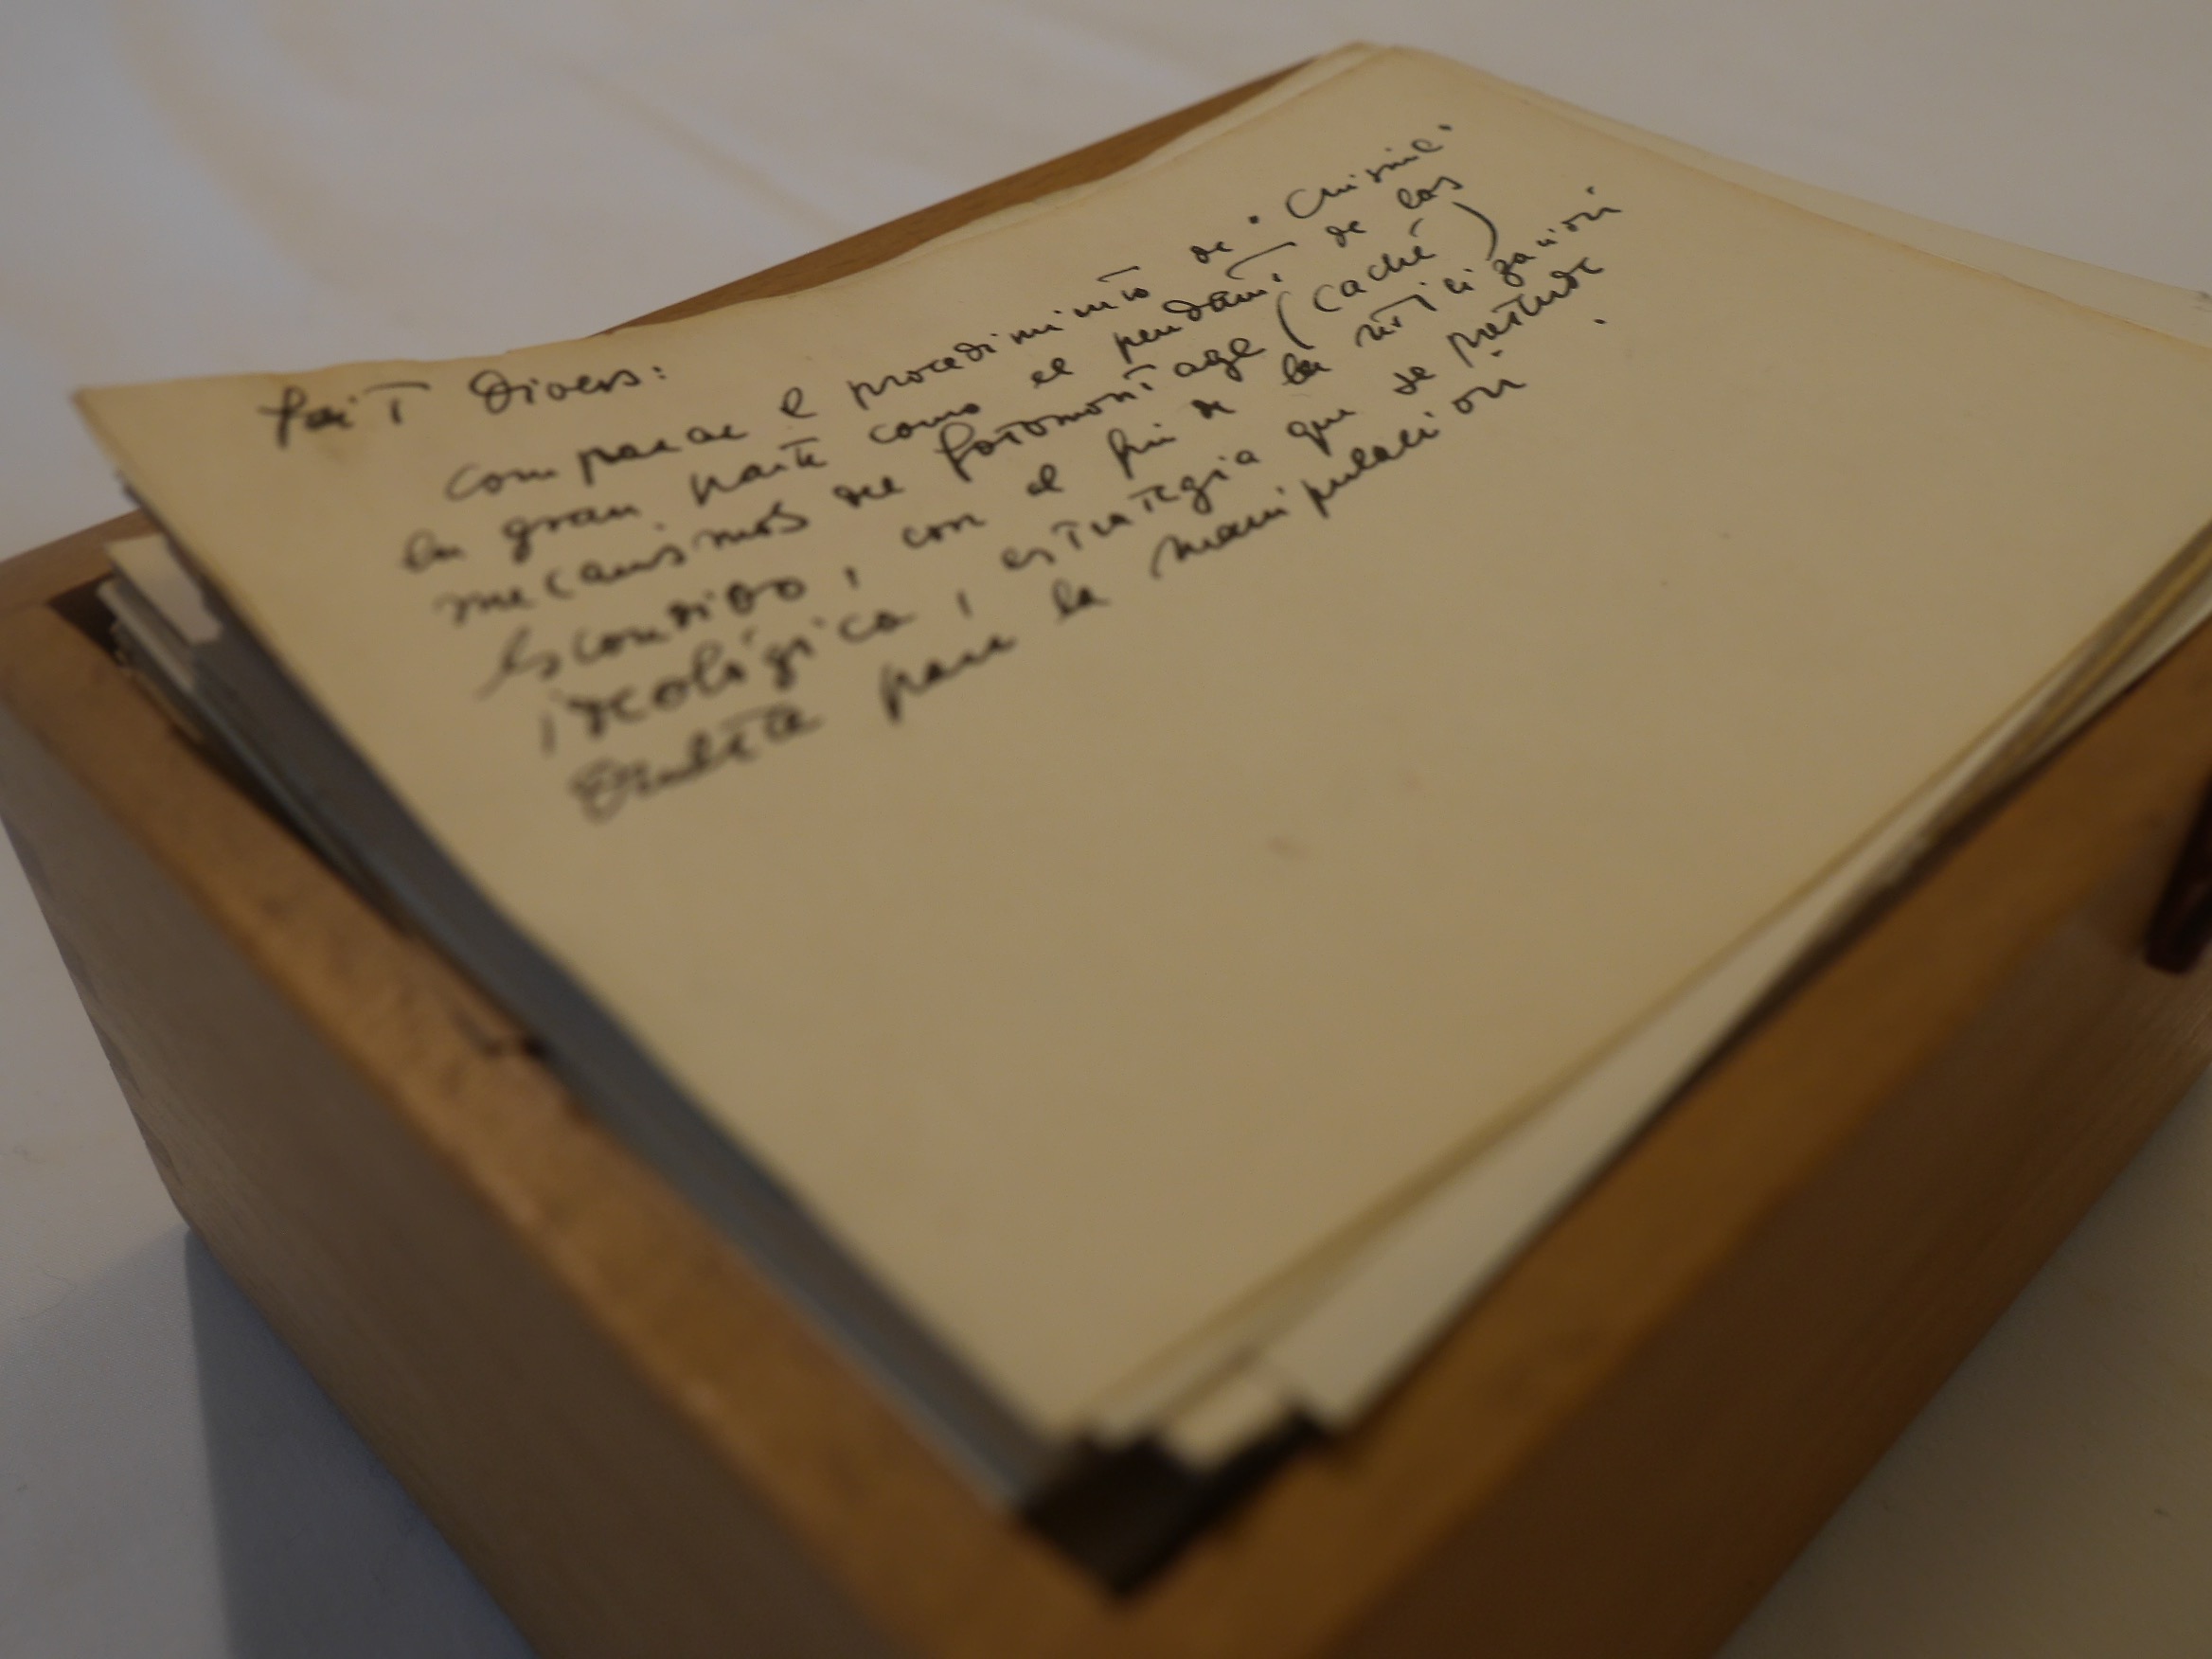 fait Divers:
comparar el procedimiento de "Chismil"
en gran parte como el pendant de los
mecanismos del fotomontage (caché)
escondido, con el fin de la noticización
ideológica, estrategia que se pretende
oculta para la manipulación.